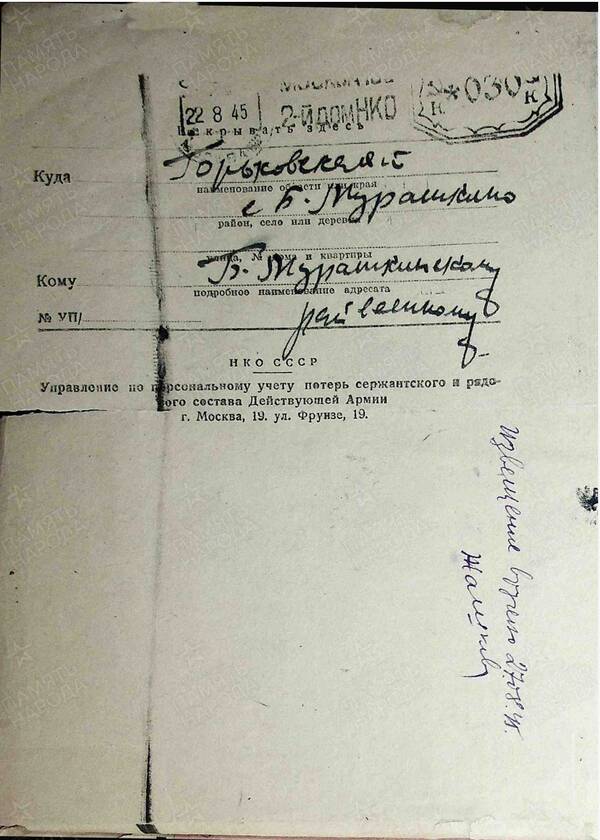 22 8 45
2-Й ДОМ НКО
* 030 К К
Вскрывать здесь
Куда Горьковская й
наименование области или края
с Б-Мурашкино
район, село или деревня
улица, № дома и квартиры
Кому Б-Мурашкинскому
подробное наименование адресата
№ УП/
рай военкому
НКО СССР
Управление по персональному учету потерь сержантского и рядо-
ого состава Действующей Армии
г. Москва, 19. ул. Фрунзе, 19.
Извещение вручено 27.08.45.
ПАМЯТЬ НАРОДА